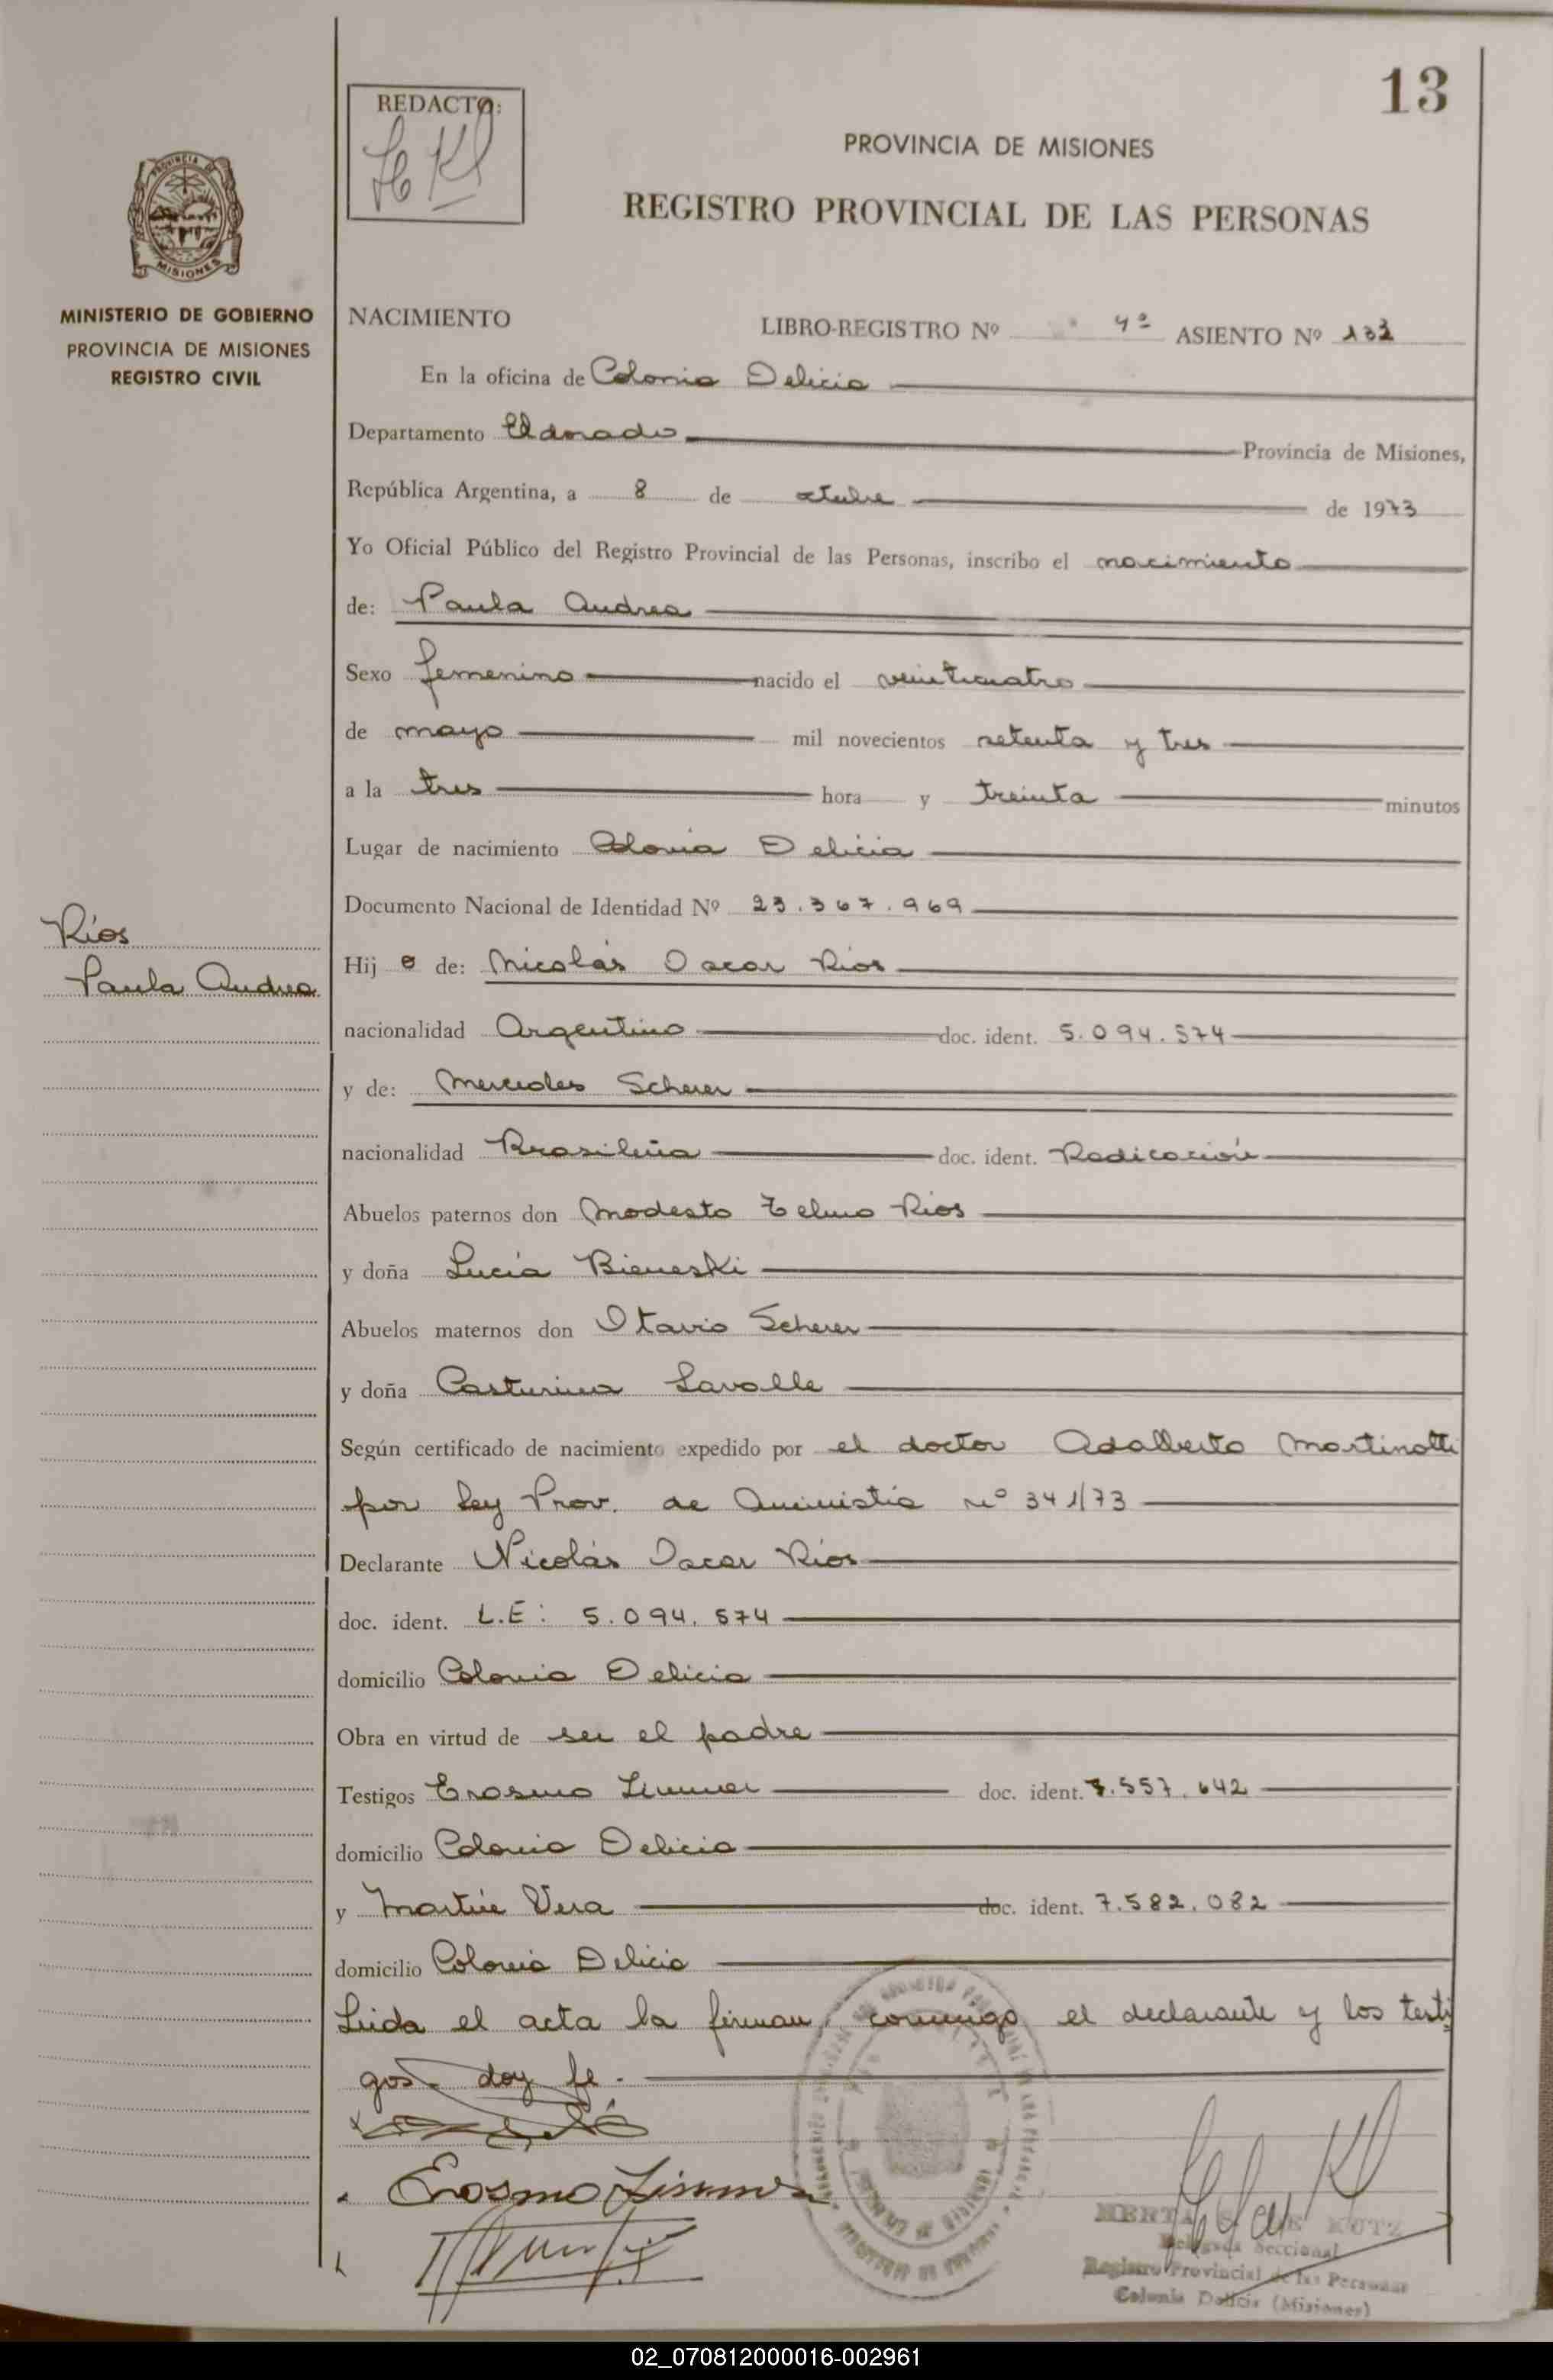 13
REDACTO:
PROVINCIA DE MISIONES
REGISTRO PROVINCIAL DE LAS PERSONAS
PROVINCIA DE
MISIONES
MINISTERIO DE GOBIERNO
PROVINCIA DE MISIONES
REGISTRO CIVIL
NACIMIENTO LIBRO-REGISTRO Nº 4º ASIENTO Nº 133
En la oficina de Colonia Delicia
Departamento Eldorado Provincia de Misiones,
República Argentina, a 8 de octubre de 1973
Yo Oficial Público del Registro Provincial de las Personas, inscribo el nacimiento
de: Paula Andrea
Sexo femenino nacido el veinticuatro
de mayo mil novecientos setenta y tres
a la tres hora y treinta minutos
Lugar de nacimiento Colonia Delicia
Documento Nacional de Identidad Nº 23.367.969
Ríos
Paula Andrea
Hij a de: Nicolás Oscar Ríos
nacionalidad Argentino doc. ident. 5.094.574
y de: Mercedes Scherer
nacionalidad Brasileña doc. ident. Radicación
Abuelos paternos don Modesto Telmo Ríos
y doña Lucía Bieneski
Abuelos maternos don Otavio Scherer
y doña Casturina Lavalle
Según certificado de nacimiento expedido por el doctor Adalberto Martinotti
por Ley Prov. de Amnistía nº 341/73
Declarante Nicolás Oscar Ríos
doc. ident. L.E: 5.094.574
domicilio Colonia Delicia
Obra en virtud de ser el padre
Testigos Erasmo doc. ident. 7.557.642
domicilio Colonia Delicia
y Martín Vera doc. ident. 7.582.082
domicilio Colonia Delicia
Leida el acta la firman, conmigo el declarante y los testi
gos- doy fe.-
Erasmo
Delegada Seccional
Registro Provincial de las Personas
Colonia Delicia (Misiones)
02_070812000016-002961